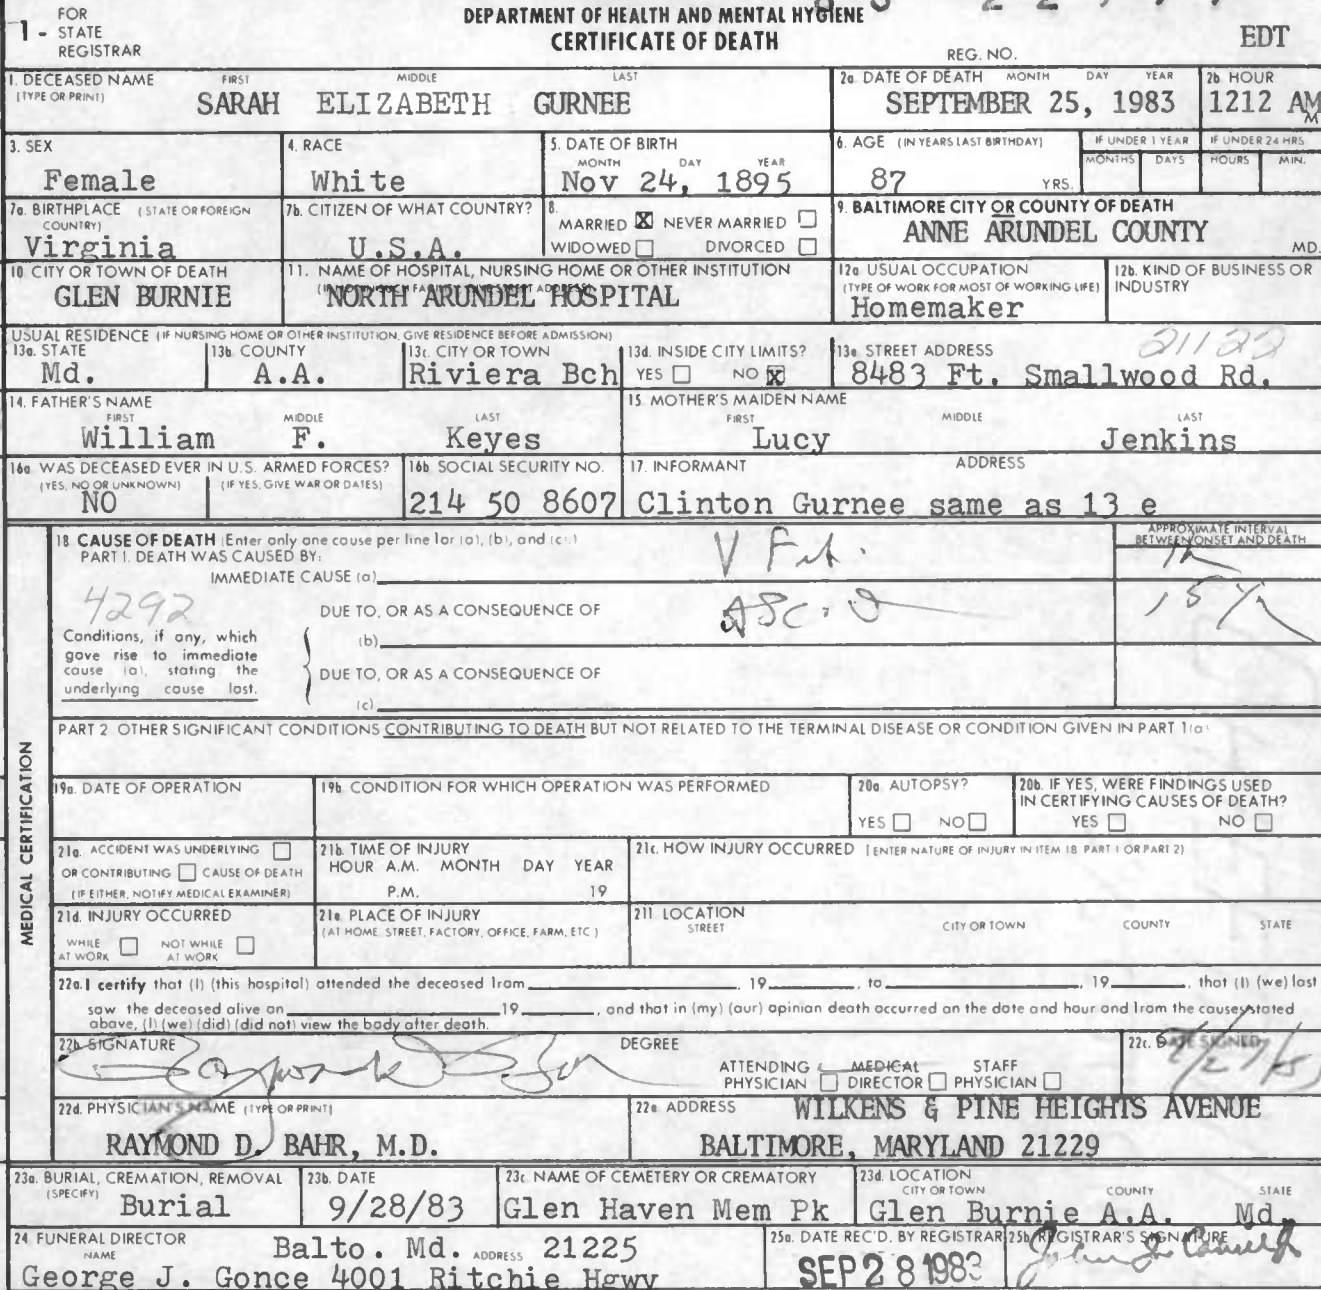 1 - FOR STATE REGISTRAR
DEPARTMENT OF HEALTH AND MENTAL HYGIENE
CERTIFICATE OF DEATH
REG. NO.
EDT
1. DECEASED NAME (TYPE OR PRINT) FIRST MIDDLE LAST
SARAH ELIZABETH GURNEE
2a. DATE OF DEATH MONTH DAY YEAR
SEPTEMBER 25, 1983
2b. HOUR
1212 AM
M
3. SEX
Female
4. RACE
White
5. DATE OF BIRTH
MONTH DAY YEAR
Nov 24, 1895
6. AGE (IN YEARS LAST BIRTHDAY)
87 YRS.
IF UNDER 1 YEAR
MONTHS DAYS
IF UNDER 24 HRS
HOURS MIN.
7a. BIRTHPLACE (STATE OR FOREIGN COUNTRY)
Virginia
7b. CITIZEN OF WHAT COUNTRY?
U.S.A.
8.
MARRIED X NEVER MARRIED
WIDOWED DIVORCED
9. BALTIMORE CITY OR COUNTY OF DEATH
ANNE ARUNDEL COUNTY
MD.
10. CITY OR TOWN OF DEATH
GLEN BURNIE
11. NAME OF HOSPITAL, NURSING HOME OR OTHER INSTITUTION
NORTH ARUNDEL HOSPITAL
12a. USUAL OCCUPATION
(TYPE OF WORK FOR MOST OF WORKING LIFE)
Homemaker
12b. KIND OF BUSINESS OR INDUSTRY
USUAL RESIDENCE (IF NURSING HOME OR OTHER INSTITUTION, GIVE RESIDENCE BEFORE ADMISSION)
13a. STATE
Md.
13b. COUNTY
A.A.
13c. CITY OR TOWN
Riviera Bch
13d. INSIDE CITY LIMITS?
YES NO X
13e STREET ADDRESS
21122
8483 Ft. Smallwood Rd.
14. FATHER'S NAME
FIRST MIDDLE LAST
William F. Keyes
15. MOTHER'S MAIDEN NAME
FIRST MIDDLE LAST
Lucy Jenkins
16a WAS DECEASED EVER IN U.S. ARMED FORCES?
(YES, NO OR UNKNOWN) (IF YES, GIVE WAR OR DATES)
NO
16b SOCIAL SECURITY NO.
214 50 8607
17. INFORMANT ADDRESS
Clinton Gurnee same as 13 e
MEDICAL CERTIFICATION
18 CAUSE OF DEATH (Enter only one cause per line for (a), (b), and (c).)
PART I. DEATH WAS CAUSED BY:
APPROXIMATE INTERVAL BETWEEN ONSET AND DEATH
IMMEDIATE CAUSE (a)
4292
DUE TO, OR AS A CONSEQUENCE OF
(b)
Conditions, if any, which
gave rise to immediate
cause (a), stating the
underlying cause last.
DUE TO, OR AS A CONSEQUENCE OF
(c)
PART 2 OTHER SIGNIFICANT CONDITIONS CONTRIBUTING TO DEATH BUT NOT RELATED TO THE TERMINAL DISEASE OR CONDITION GIVEN IN PART 1(a)
19a. DATE OF OPERATION
19b. CONDITION FOR WHICH OPERATION WAS PERFORMED
20a AUTOPSY?
YES NO
20b. IF YES, WERE FINDINGS USED
IN CERTIFYING CAUSES OF DEATH?
YES NO
21a. ACCIDENT WAS UNDERLYING
OR CONTRIBUTING CAUSE OF DEATH
(IF EITHER, NOTIFY MEDICAL EXAMINER)
21b. TIME OF INJURY
HOUR A.M. MONTH DAY YEAR
P.M. 19
21c. HOW INJURY OCCURRED (ENTER NATURE OF INJURY IN ITEM 18 PART 1 OR PART 2)
21d. INJURY OCCURRED
WHILE AT WORK NOT WHILE AT WORK
21e PLACE OF INJURY
(AT HOME, STREET, FACTORY, OFFICE, FARM, ETC.)
21f LOCATION
STREET CITY OR TOWN COUNTY STATE
22a. I certify that (I) (this hospital) attended the deceased from , 19 , to , 19 , that (I) (we) last
saw the deceased alive on 19 , and that in (my) (our) opinion death occurred on the date and hour and from the causes stated
above, (I) (we) (did) (did not) view the body after death.
22b. SIGNATURE
DEGREE
ATTENDING PHYSICIAN MEDICAL DIRECTOR STAFF PHYSICIAN
22c. DATE SIGNED
22d. PHYSICIAN'S NAME (TYPE OR PRINT)
RAYMOND D. BAHR, M.D.
22e ADDRESS
WILKENS & PINE HEIGHTS AVENUE
BALTIMORE, MARYLAND 21229
23a. BURIAL, CREMATION, REMOVAL (SPECIFY)
Burial
23b. DATE
9/28/83
23c NAME OF CEMETERY OR CREMATORY
Glen Haven Mem Pk
23d. LOCATION
CITY OR TOWN COUNTY STATE
Glen Burnie A.A. Md.
24 FUNERAL DIRECTOR
NAME ADDRESS
Balto. Md. 21225
George J. Gonce 4001 Ritchie Hgwy
25a. DATE REC'D. BY REGISTRAR
SEP 28 1983
25b. REGISTRAR'S SIGNATURE